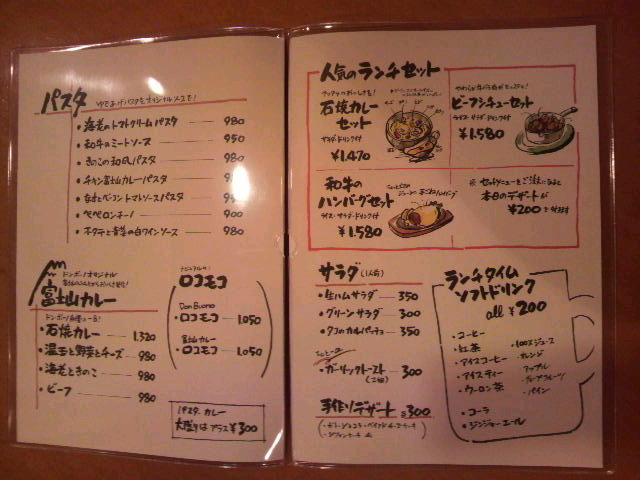 パスタ
ゆであげパスタをオリジナルソースで!
・海老のトマトクリームパスタ 980
・和牛のミートソース 950
・きのこの和風パスタ 980
・チキン富士山カレーパスタ
・なすとベーコントマトソースパスタ
・ペペロンチーノ 900
・ホタテと青菜の白ワインソース 980
富士山カレー
・石焼カレー 1,320
・温玉と野菜とチーズ 980
・海老ときのこ 980
・ビーフ 980
ロコモコ
Don Buono
・ロコモコ 1,050
富士山カレー
・ロコモコ 1,050
パスタ、カレー
大盛りはプラス¥300
人気のランチセット
石焼カレー
セット
サラダ・ドリンク付
¥1,470
ビーフシチューセット
ライス・サラダ・ドリンク付
¥1,580
和牛の
ハンバーグセット
ライス・サラダ・ドリンク付
¥1,580
※セットメニューをご注文になると
本日のデザートが
¥200
サラダ (1人前)
・生ハムサラダ 350
・グリーンサラダ 300
・タコのカルパッチョ 350
・ガーリックトースト (2個) 300
手作りデザート 各300
ランチタイム
ソフトドリンク
all ¥200
・コーヒー
・紅茶
・アイスコーヒー
・アイスティー
・ウーロン茶
・コーラ
・ジンジャーエール
・100%ジュース
・オレンジ
アップル
・グレープフルーツ
・パイン